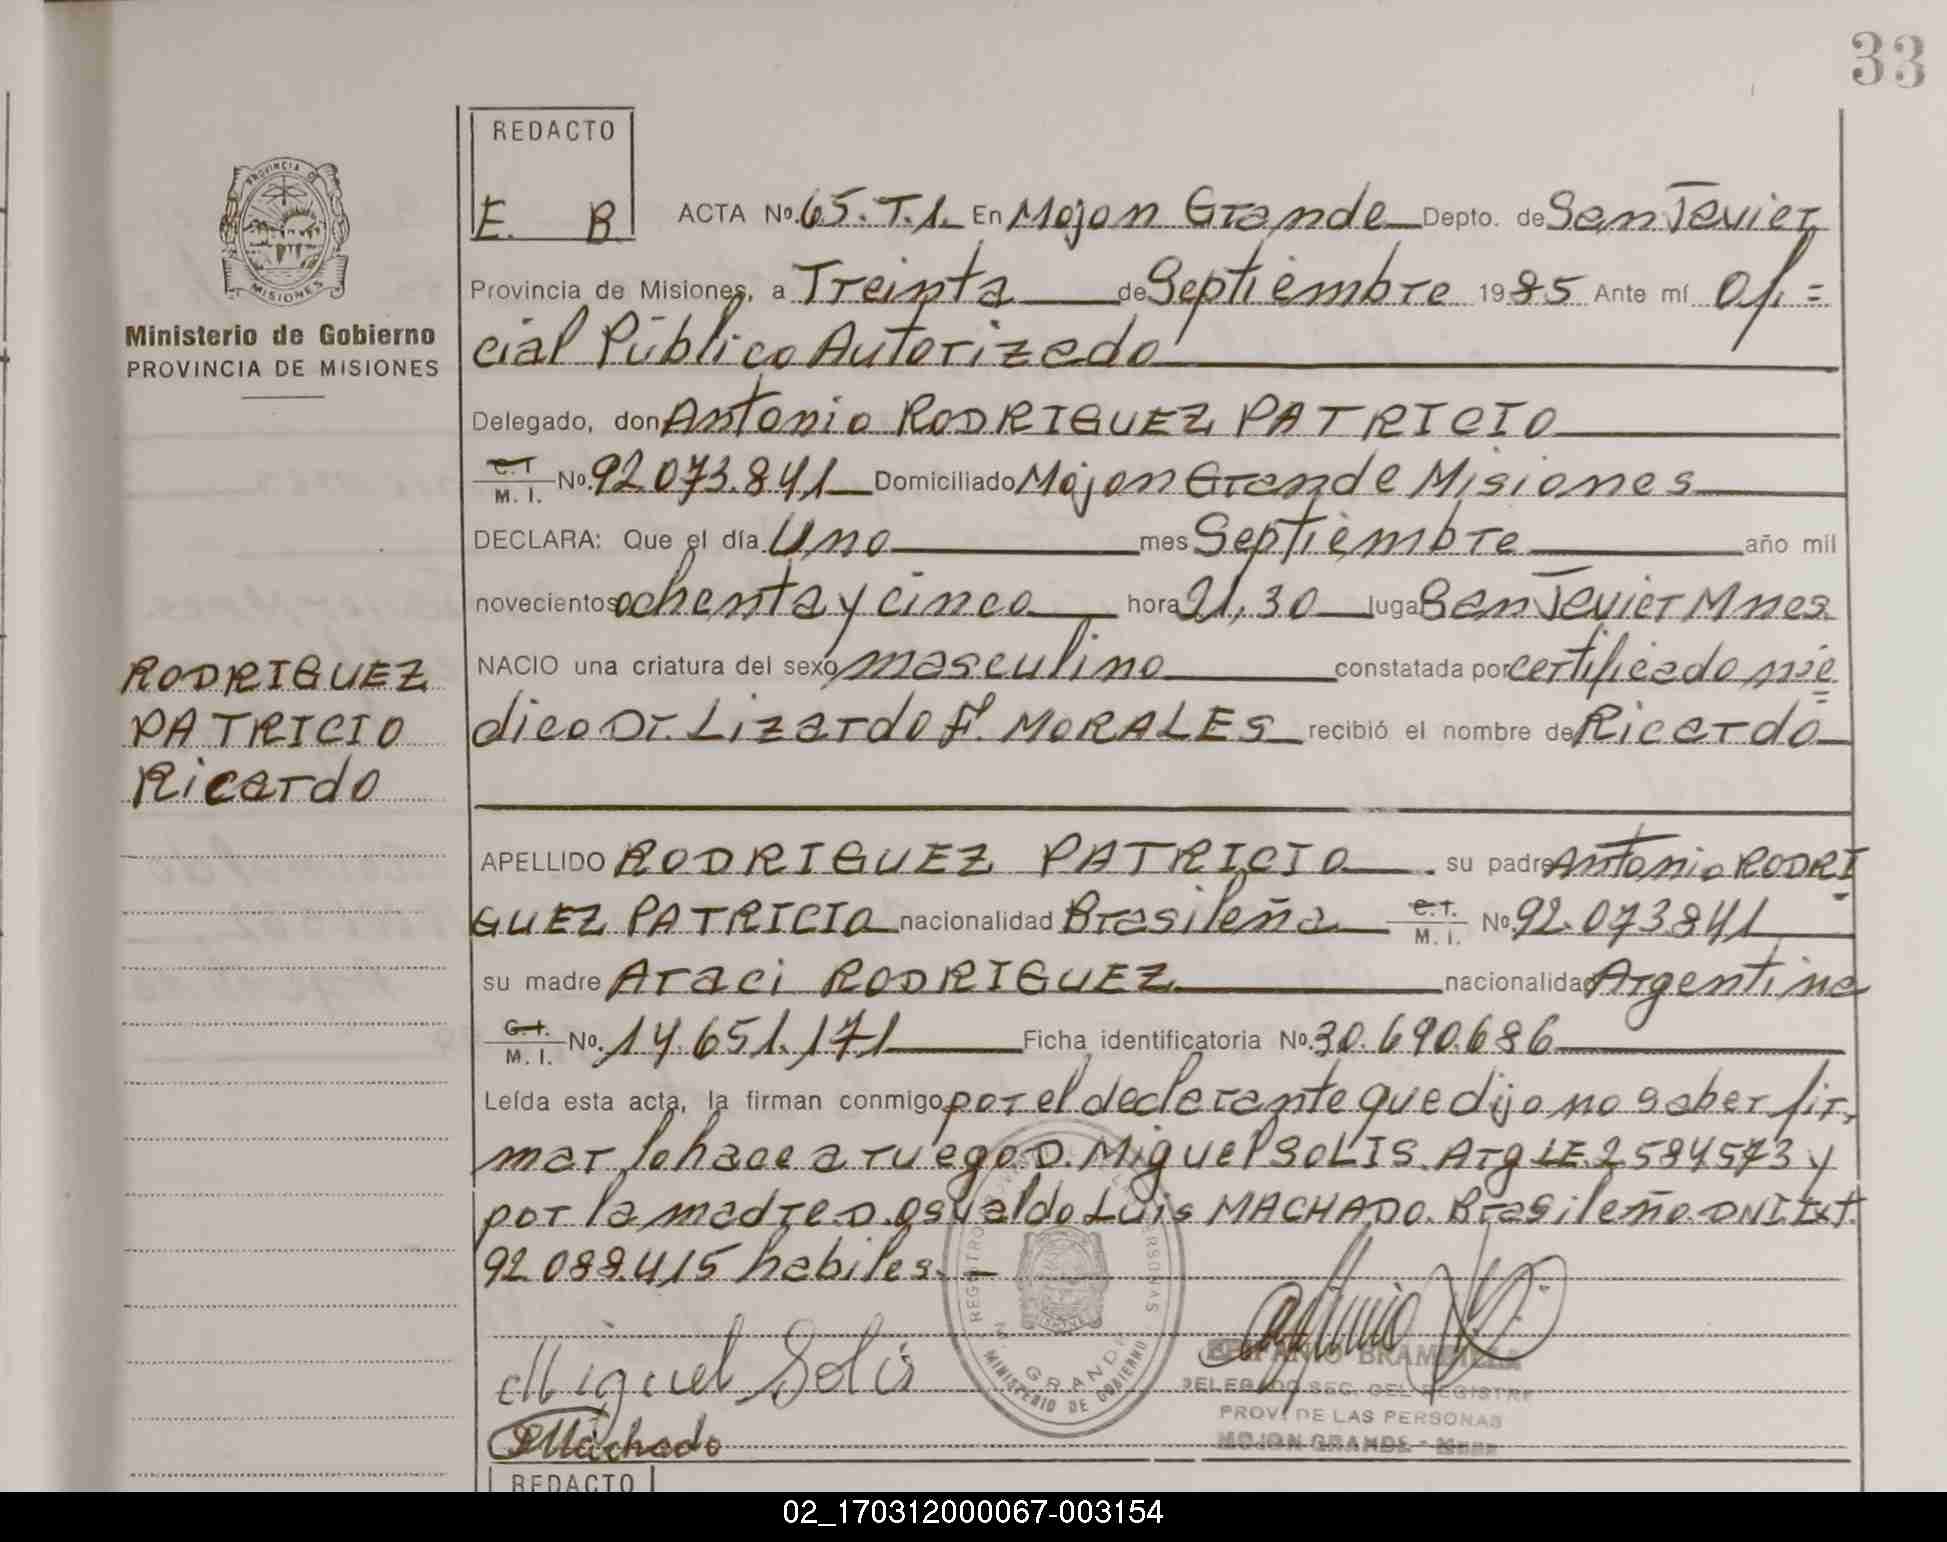 33
REDACTO
E. B.
PROVINCIA DE
MISIONES
Ministerio de Gobierno
PROVINCIA DE MISIONES
ACTA No. 65. T.1. En Mojon Grande Depto. de San Javier
Provincia de Misiones, a Treinta de Septiembre 1985 Ante mí Ofi=
cial Público Autorizado
Delegado, don Antonio RODRIGUEZ PATRICIO
C.I. M. I. No. 92.073.841 Domiciliado Mojon Grande Misiones
DECLARA: Que el día Uno mes Septiembre año mil
novecientos ochenta y cinco hora 21,30 lugar San Javier Mnes.
NACIO una criatura del sexo masculino constatada por certificado mé=
dico Dr. Lizardo F. MORALES recibió el nombre de Ricardo
RODRIGUEZ
PATRICIO
Ricardo
APELLIDO RODRIGUEZ PATRICIO su padre Antonio RODRI
GUEZ PATRICIO nacionalidad Brasileña C.I. M. I. No. 92.073.841
su madre Araci RODRIGUEZ nacionalidad Argentina
C.I. M. I. No. 14.651.171 Ficha identificatoria No. 30.690.686
Leída esta acta, la firman conmigo por el declarante que dijo no saber fir-
mar lo hace a ruego D. Miguel SOLIS. Arg LE. 2584573 y
por la madre D. Osvaldo Luis MACHADO. Brasileño. DNI. Ext.
92.088.415 habiles.-
Miguel Solis
Machado
REGISTRO PERSONAS
GRANDE
MINISTERIO DE GOBIERNO
DELEGADO SEC. DEL REGISTRO
PROV. DE LAS PERSONAS
MOJON GRANDE - Mnes
REDACTO
02_170312000067-003154